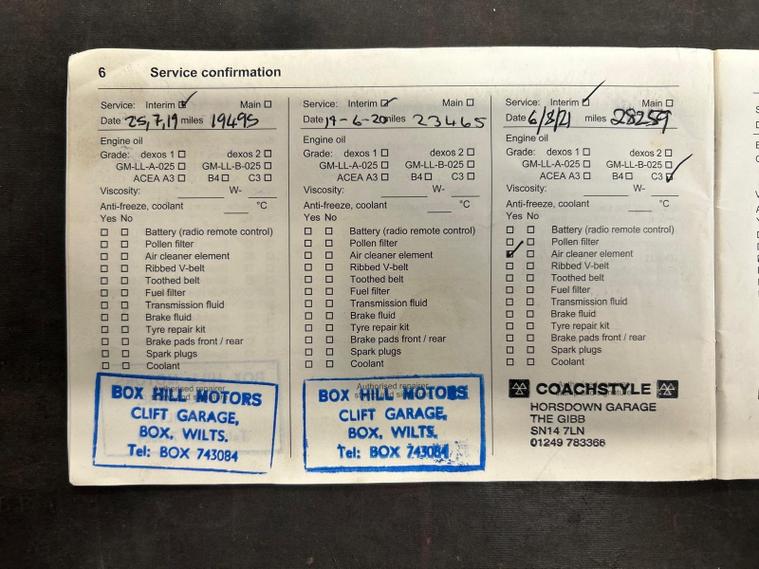 6 Service confirmation
Service: Interim Main
Date 25,7,19 miles 19495
Engine oil
Grade: dexos 1 dexos 2
GM-LL-A-025 GM-LL-B-025
ACEA A3 B4 C3
Viscosity: W-
Anti-freeze, coolant °C
Yes No
Battery (radio remote control)
Pollen filter
Air cleaner element
Ribbed V-belt
Toothed belt
Fuel filter
Transmission fluid
Brake fluid
Tyre repair kit
Brake pads front / rear
Spark plugs
Coolant
Authorised repairer
BOX HILL MOTORS
CLIFT GARAGE,
BOX, WILTS.
Tel: BOX 743084
Service: Interim Main
Date 19-6-20 miles 23465
Engine oil
Grade: dexos 1 dexos 2
GM-LL-A-025 GM-LL-B-025
ACEA A3 B4 C3
Viscosity: W-
Anti-freeze, coolant °C
Yes No
Battery (radio remote control)
Pollen filter
Air cleaner element
Ribbed V-belt
Toothed belt
Fuel filter
Transmission fluid
Brake fluid
Tyre repair kit
Brake pads front / rear
Spark plugs
Coolant
Authorised repairer
BOX HILL MOTORS
CLIFT GARAGE,
BOX, WILTS.
Tel: BOX 743084
Service: Interim Main
Date 6/8/21 miles 28259
Engine oil
Grade: dexos 1 dexos 2
GM-LL-A-025 GM-LL-B-025
ACEA A3 B4 C3
Viscosity: W-
Anti-freeze, coolant °C
Yes No
Battery (radio remote control)
Pollen filter
Air cleaner element
Ribbed V-belt
Toothed belt
Fuel filter
Transmission fluid
Brake fluid
Tyre repair kit
Brake pads front / rear
Spark plugs
Coolant
COACHSTYLE
HORSDOWN GARAGE
THE GIBB
SN14 7LN
01249 783366